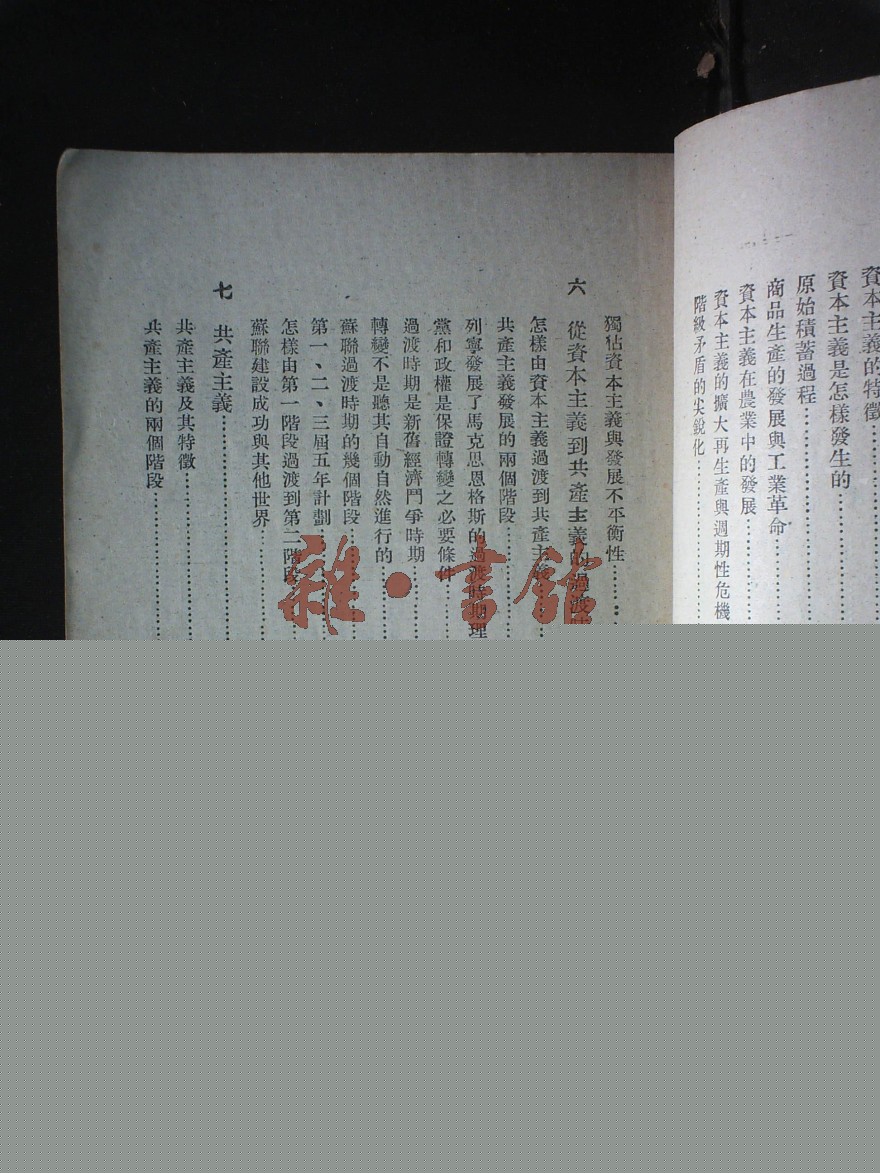 資本主義的特徵………
資本主義是怎樣發生的………
原始積蓄過程………
商品生產的發展與工業革命………
資本主義在農業中的發展………
資本主義的擴大再生產與週期性危機
階級矛盾的尖銳化………
獨佔資本主義與發展不平衡性………
六 從資本主義到共產主義的過渡
怎樣由資本主義過渡到共產主義………
共產主義發展的兩個階段………
列寧發展了馬克思恩格斯的過渡時期理
黨和政權是保證轉變之必要條件
過渡時期是新舊經濟鬥爭時期………
轉變不是聽其自動自然進行的………
蘇聯過渡時期的幾個階段………
第一、二、三屆五年計劃………
怎樣由第一階段過渡到第二階段………
蘇聯建設成功與其他世界………
七 共產主義………
共產主義及其特徵………
共產主義的兩個階段………
雜·書館